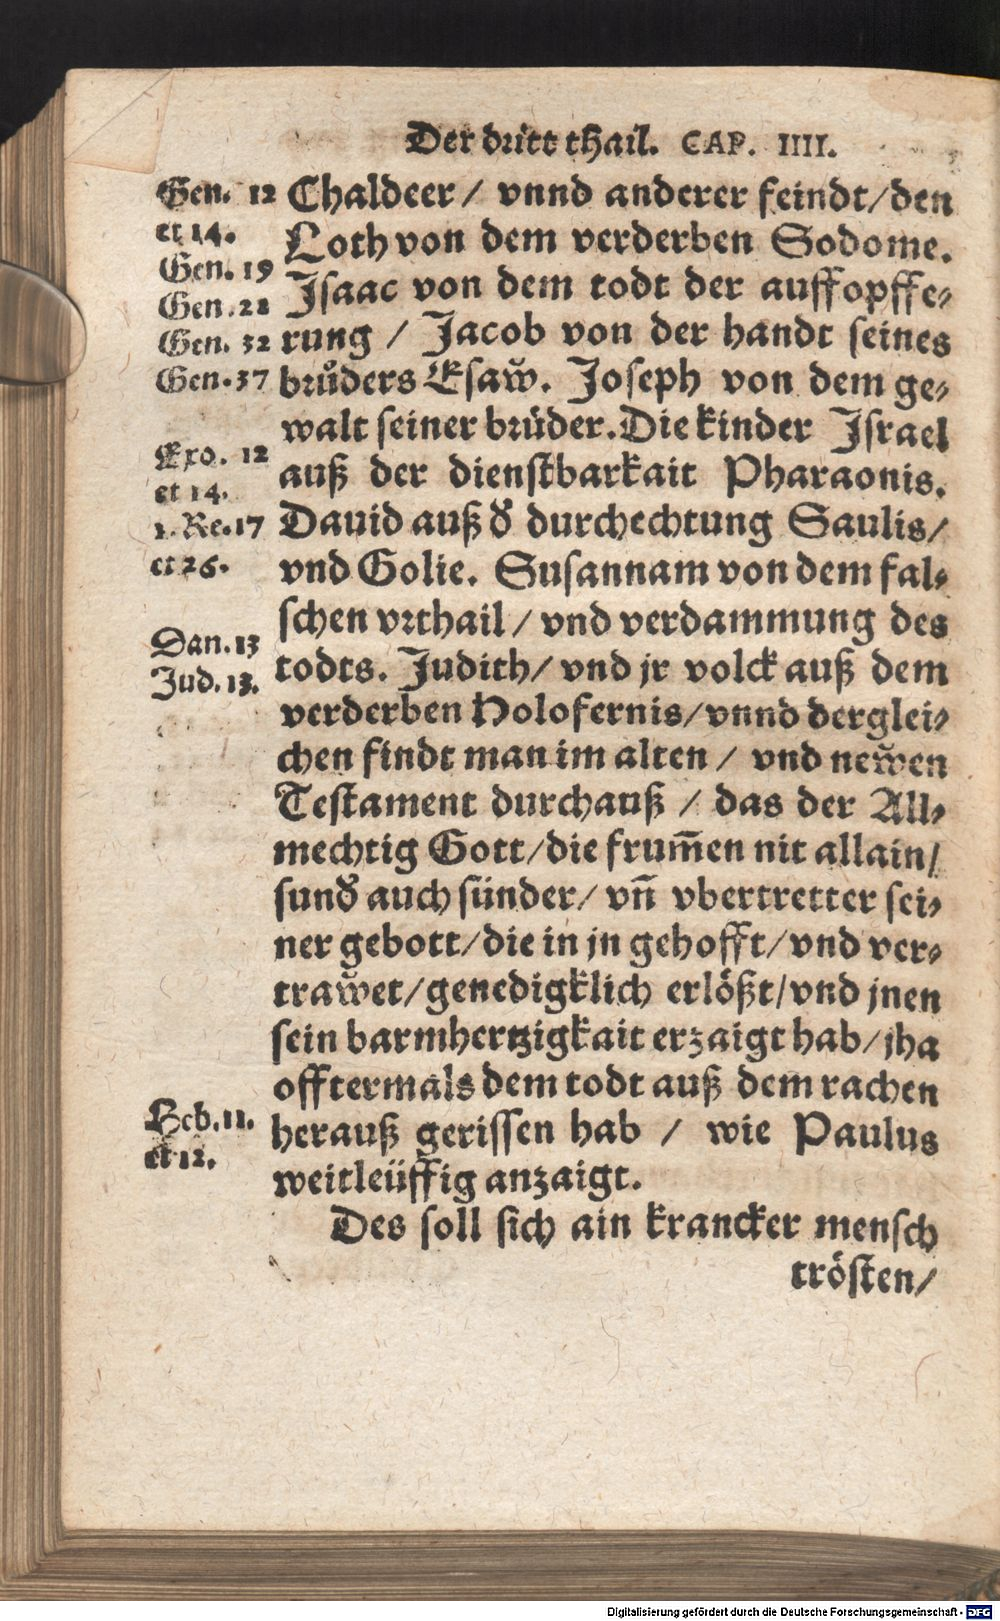 Der dritt thail. CAP. IIII.
Gen. 12
et 14.
Gen. 19
Gen. 22
Gen. 32
Gen. 37
Exo. 12
et 14.
1. Re. 17
et 26.
Dan. 13
Jud. 13.
Heb. 11.
et 12.
Chaldeer / vnnd anderer feindt / den
Loth von dem verderben Sodome.
Isaac von dem todt der auffopffe⸗
rung / Jacob von der handt seines
brůders Esaw̌. Joseph von dem ge⸗
walt seiner brüder. Die kinder Israel
auß der dienstbarkait Pharaonis.
Dauid auß d̕ durchechtung Saulis /
vnd Golie. Susannam von dem fal⸗
schen vrthail / vnd verdammung des
todts. Judith / vnd jr volck auß dem
verderben Holofernis / vnnd derglei⸗
chen findt man im alten / vnd new̌en
Testament durchauß / das der All⸗
mechtig Gott / die frum̄en nit allain /
sund̕ auch sünder / vn̄ vbertretter sei⸗
ner gebott / die in jn gehofft / vnd ver⸗
traw̌et / genedigklich erlößt / vnd jnen
sein barmhertzigkait erzaigt hab / jha
offtermals dem todt auß dem rachen
herauß gerissen hab / wie Paulus
weitleüffig anzaigt.
Des soll sich ain krancker mensch
trösten /
Digitalisierung gefördert durch die Deutsche Forschungsgemeinschaft - DFG